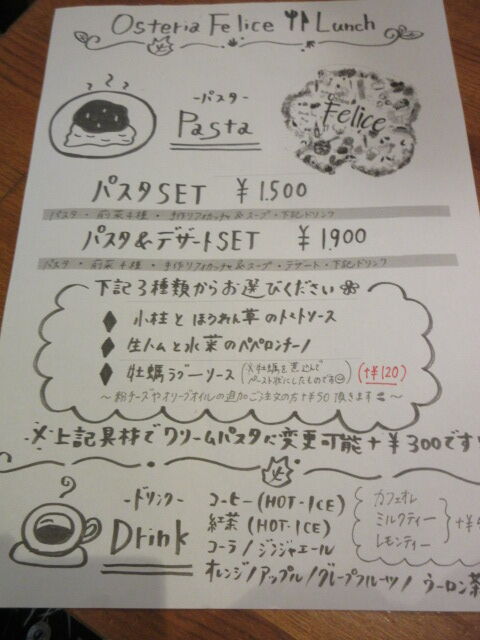 Osteria Felice Lunch
-パスタ-
Pasta
Felice
パスタSET ¥1.500
パスタ・前菜4種・手作りフォカッチャ&スープ・下記ドリンク
パスタ&デザートSET ¥1.900
パスタ・前菜4種・手作りフォカッチャ&スープ・デザート・下記ドリンク
下記3種類からお選びください
小柱とほうれん草のトマトソース
生ハムと水菜のペペロンチーノ
牡蠣ラグーソース (※牡蠣を煮込んでペースト状にしたものです) (+¥120)
〜粉チーズやオリーブオイルの追加ご注文の方+¥50頂きます〜
※上記具材でクリームパスタに変更可能+¥300です
-ドリンク-
Drink
コーヒー(HOT・ICE)
紅茶(HOT・ICE)
コーラ/ジンジャエール
オレンジ/アップル/グレープフルーツ/ウーロン茶
カフェオレ
ミルクティー
レモンティー
+¥